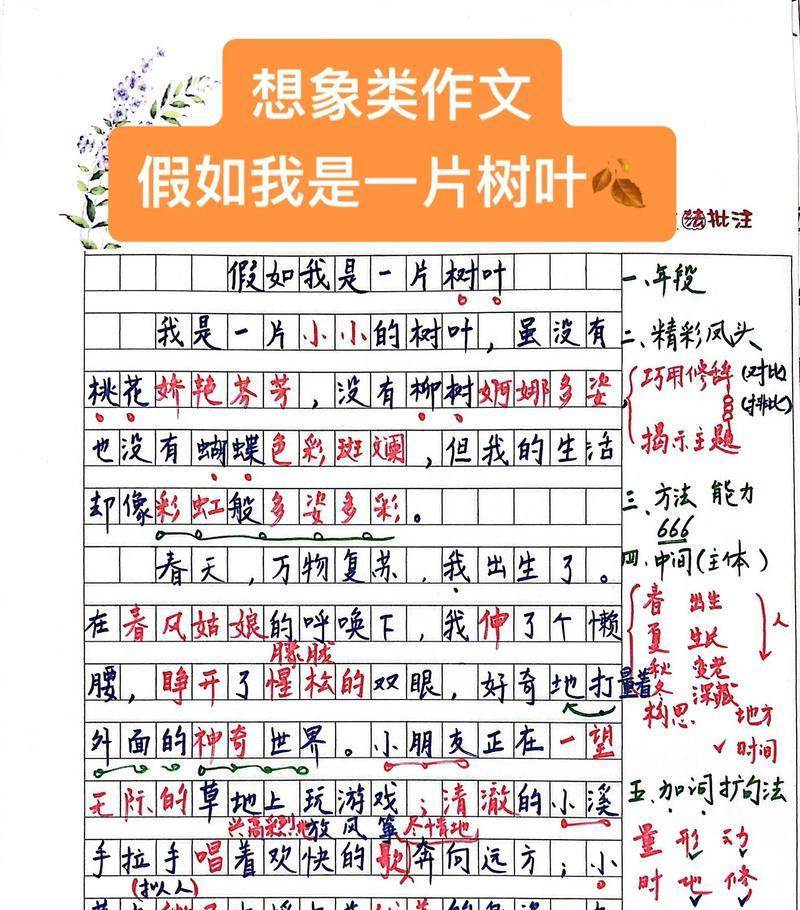 想象类作文
假如我是一片树叶
批注
假如我是一片树叶
我是一片小小的树叶，虽没有
桃花娇艳芬芳，没有柳树婀娜多姿，
也没有蝴蝶色彩斑斓，但我的生活
却像彩虹般多姿多彩。
春天，万物复苏，我出生了。
在春风姑娘的呼唤下，我伸了个懒
朦胧
腰，睁开了惺松的双眼，好奇地打量着
外面的神奇世界。小朋友正在一望
无际的草地上玩游戏；清澈的小溪
兴高采烈地放风筝 尽情地
手拉手唱着欢快的歌奔向远方；小
(拟人)
一、年段
二、精彩凤头
巧用修辞(对比)
(排比)
揭示主题
三、方法 能力
666
四、中间(主体)
春 出生
人
夏 生长
秋 变老
冬 深藏
构思 地方
✓时间
五、加词扩句法
量 形 动
时 地 修